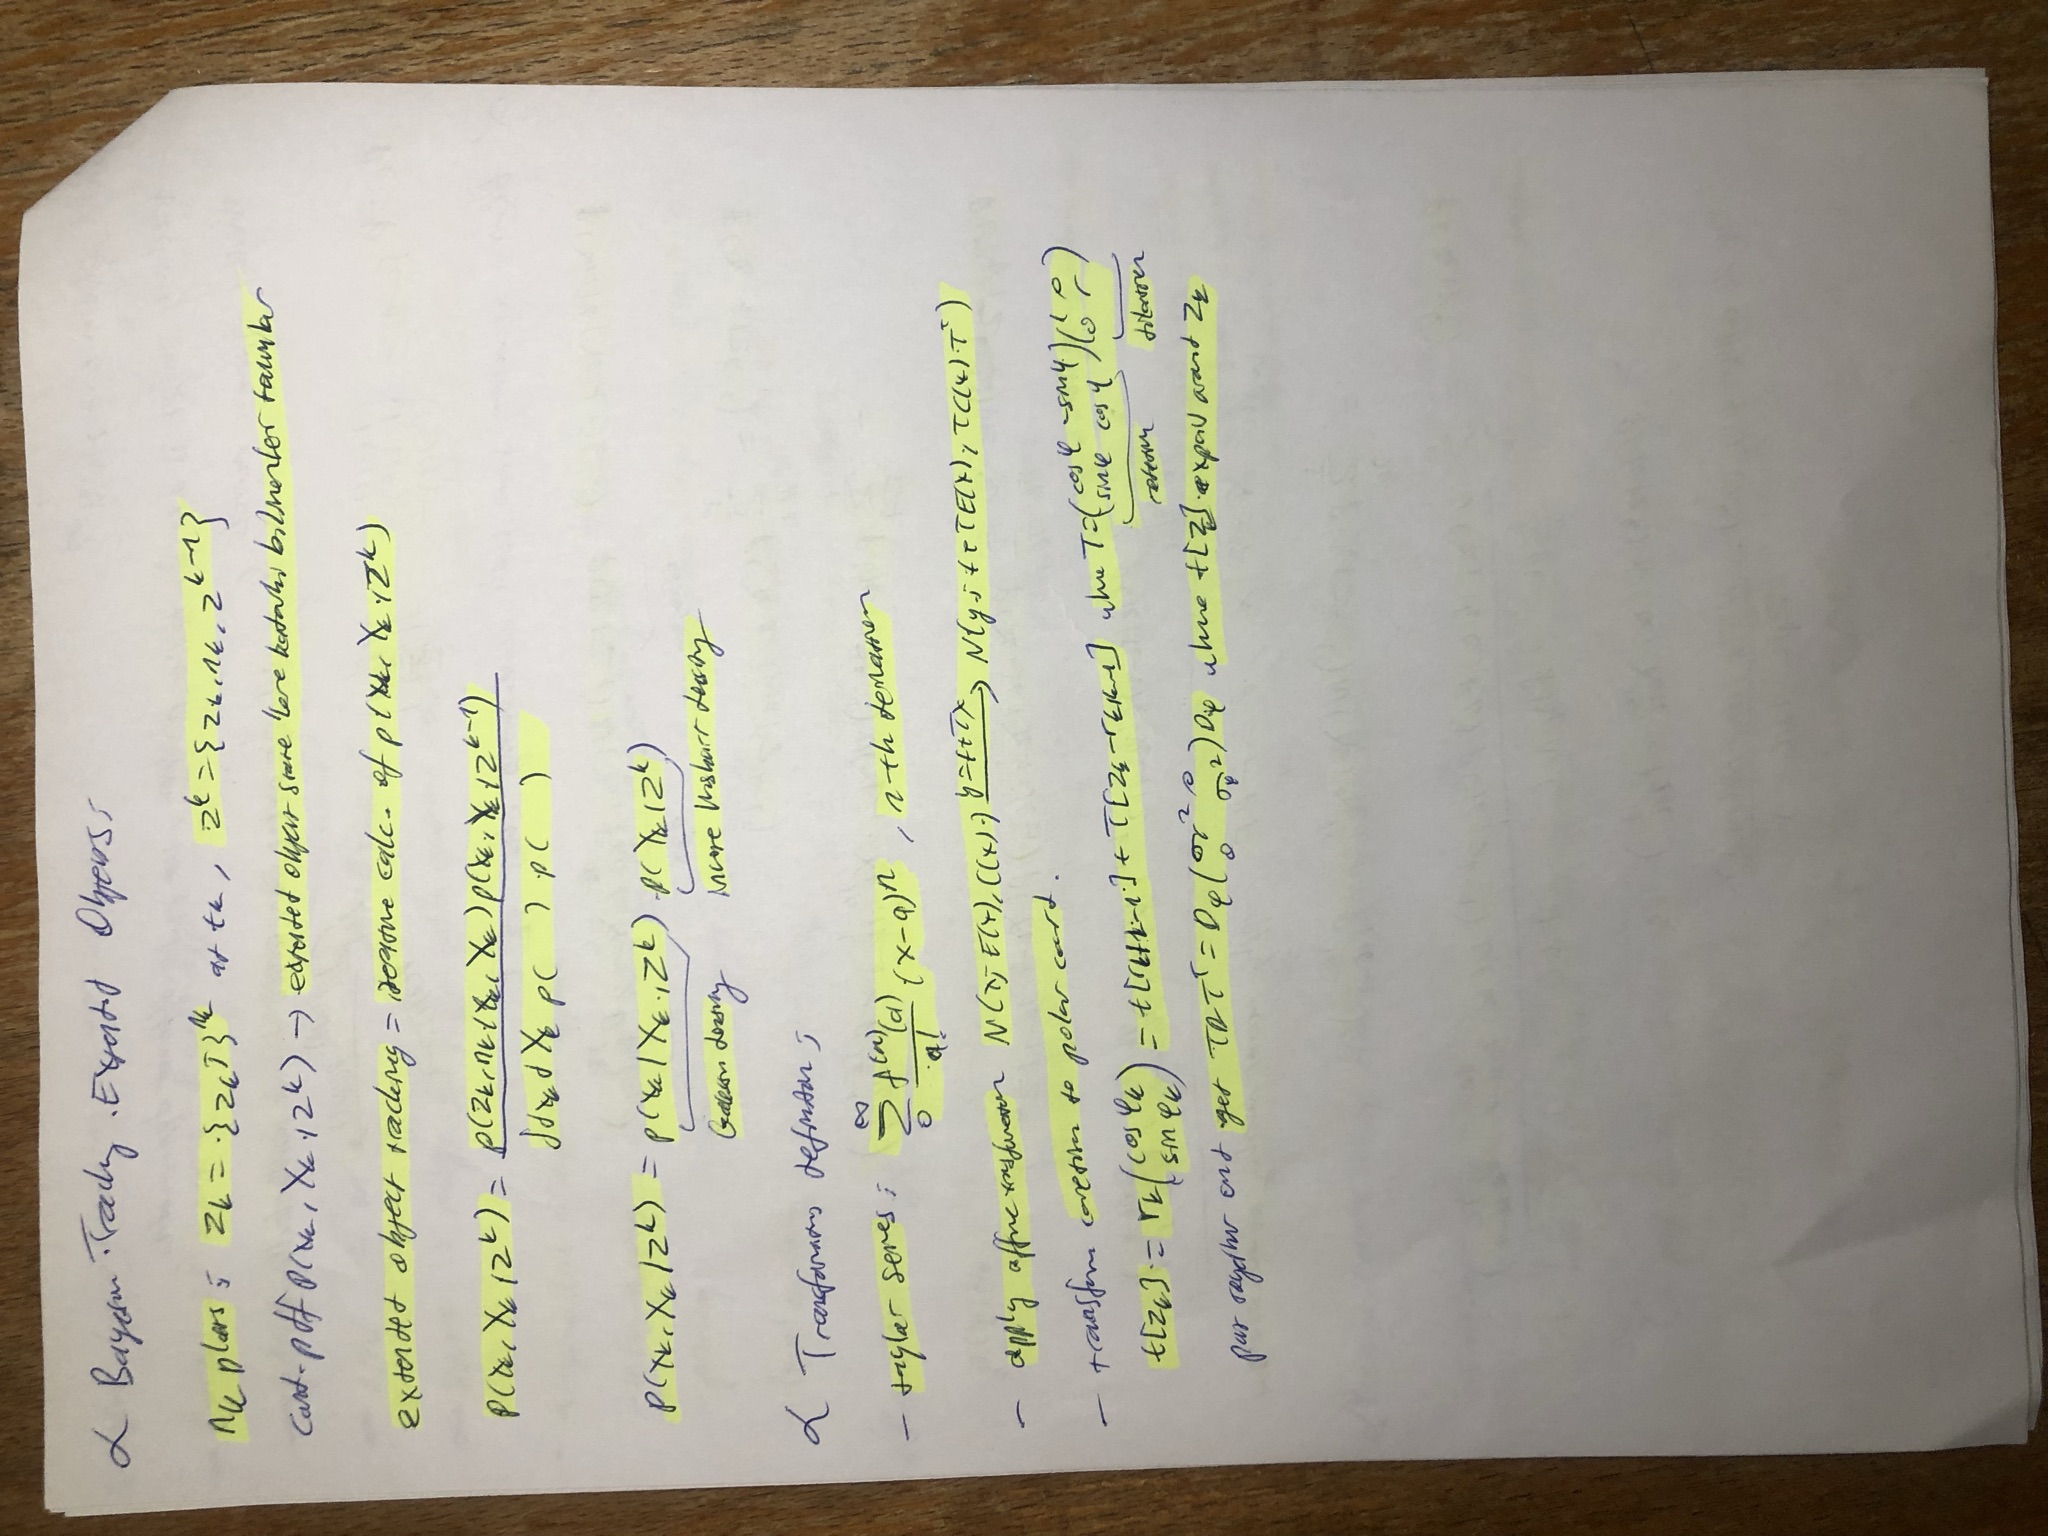 α Bayesian Tracking Extended Objects:
nk plots: Zk = {zk^j}^nk at tk, Z^k = {Zk, nk, Z^k-1}
cond. pdf p(xk, Xk | Z^k) → extended object state
extended object tracking = iterative calc. of p(xk, Xk | Z^k)
p(xk, Xk | Z^k) = p(Zk, nk | xk, Xk) p(xk, Xk | Z^k-1)
∫ dxk dXk p( ) p( )
p(xk, Xk | Z^k) = p(xk | Xk, Z^k) · p(Xk | Z^k)
density Wishart density
α Transforms definitions:
- taylor series: ∑ 0 ∞ f^(n)(a) / n! (x-a)^n, n-th derivation
- apply affine transform N(x; E(x), C(x)) y=t+Tx → N(y; t+TE(x), TC(x)T^T)
- transform to polar coord.
t[zk] = rk (cos φk sin φk) = t[rk|k-1] + T[zk - rk|k-1] where T = (cos φ -sin φ sin φ cos φ) (1 0 0 r)
rotation dilation
put together and get TRT^T = Dφ (σr^2 0 0 σφ^2) Dφ where t[zk] around zk